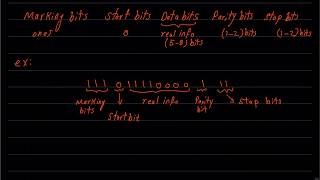 Marking bits start bits Data bits Parity bits stop bits
ones 0 real info (1-2) bits (1-2) bits
(5-8) bits
ex:
111 0 11110000 1 11
marking bits start bit real info Parity bit stop bits